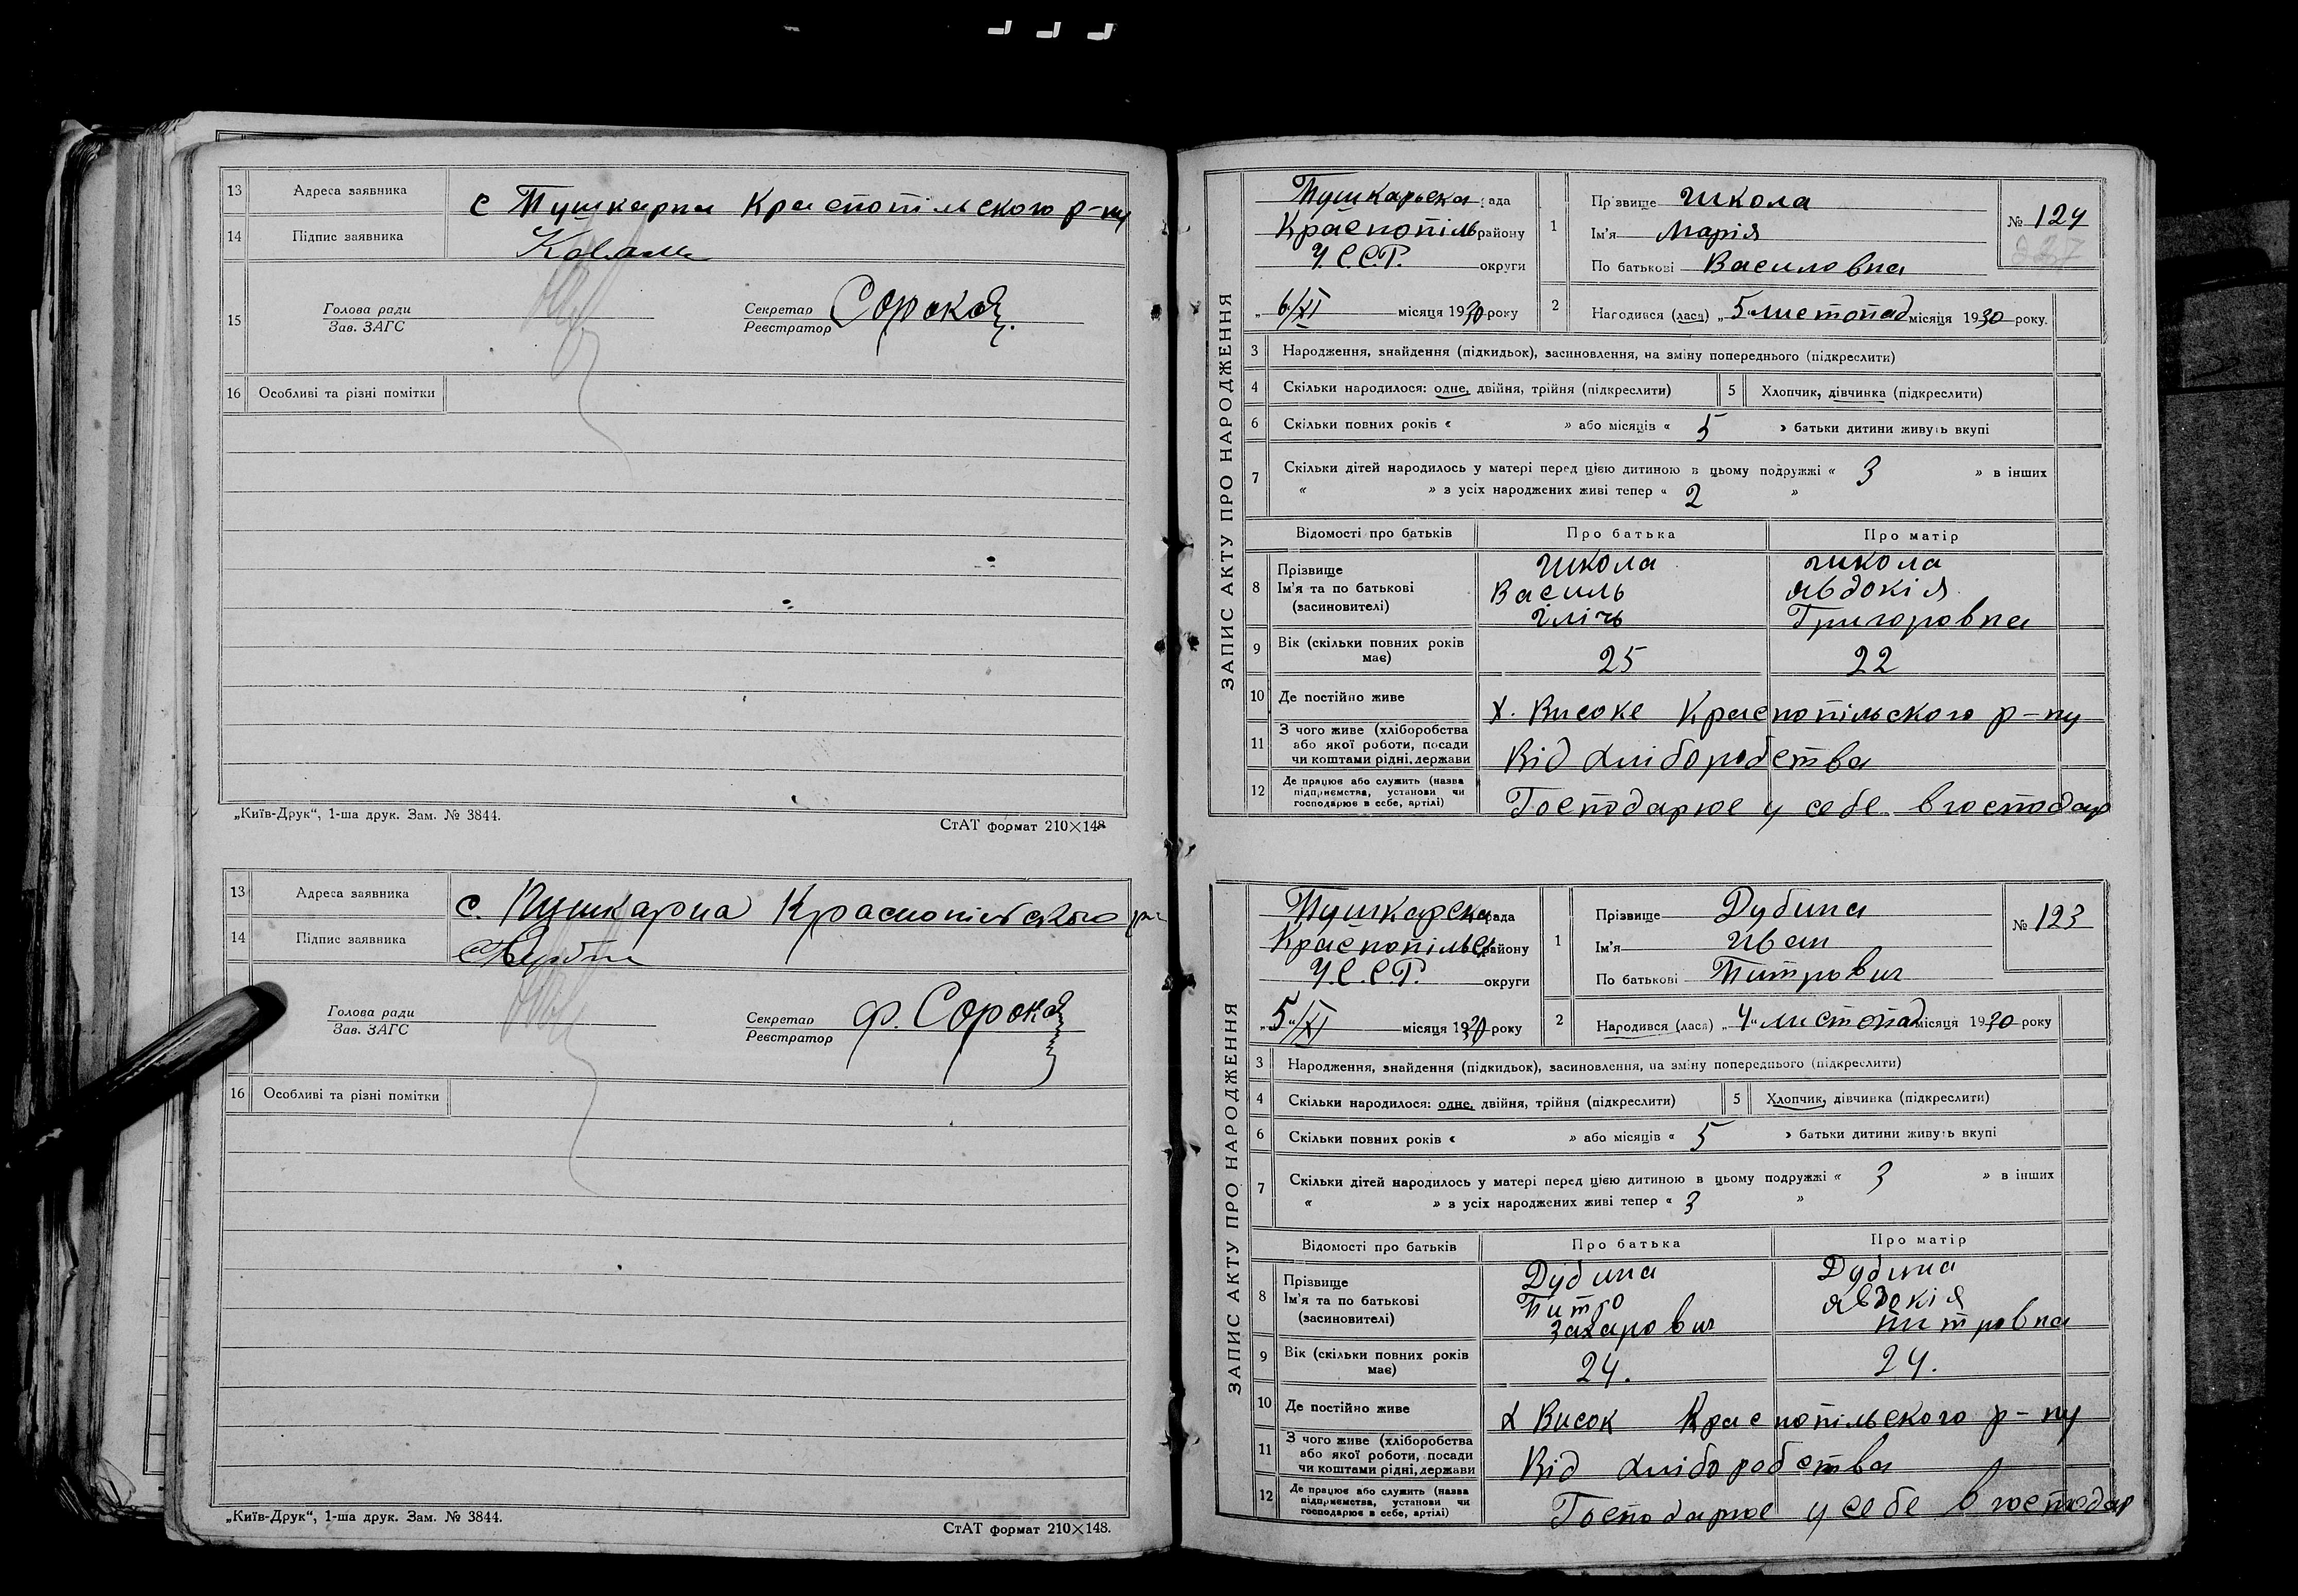 13 Адреса заявника с Пушкарна Краснопільского р-ну
14 Підпис заявника
15 Голова ради Секретар Сорока
Зав. ЗАГС Реєстратор
16 Особливі та різні помітки
„Київ-Друк“, 1-ша друк. Зам. № 3844. СтАТ формат 210×148
13 Адреса заявника с. Пушкарна Краснопільского
14 Підпис заявника
Голова ради Секретар Ф. Сорока
Зав. ЗАГС Реєстратор
16 Особливі та різні помітки
„Київ-Друк“, 1-ша друк. Зам. № 3844. СтАТ формат 210×148.
ЗАПИС АКТУ ПРО НАРОДЖЕННЯ
Пушкарьска рада
Краснопіль району
У.С.С.Р. округи
„ 6/XI місяця 1930 року
1 Прізвище Школа
Ім'я Марія
По батькові Василовна
№ 124
237
2 Народився (лася) „5 листопад місяця 1930 року.
3 Народження, знайдення (підкидьок), засиновлення, на зміну попереднього (підкреслити)
4 Скільки народилося: одне, двійня, трійня (підкреслити) 5 Хлопчик, дівчинка (підкреслити)
6 Скільки повних років « » або місяців « 5 » батьки дитини живуть вкупі
7 Скільки дітей народилось у матері перед цією дитиною в цьому подружжі « 3 » в інших
« » з усіх народжених живі тепер « 2 »
Відомості про батьків Про батька Про матір
8 Прізвище Школа Школа
Ім'я та по батькові Василь Явдокія
(засиновителі) Ілічь Григоровна
9 Вік (скільки повних років має) 25 22
10 Де постійно живе х. Високе Краснопільского р-ну
11 З чого живе (хліборобства або якої роботи, посади чи коштами рідні, держави Від хліборобства
12 Де працює або служить (назва підприємства, установи чи господарює в себе, артілі) Господарює у себе в господар
ЗАПИС АКТУ ПРО НАРОДЖЕННЯ
Пушкарска рада
Краснопільс району
У.С.С.Р. округи
„5“/XI місяця 1930 року
1 Прізвище Дубина
Ім'я Иван
По батькові Питрович
№ 123
2 Народився (лася) „4“ листопад місяця 1930 року
3 Народження, знайдення (підкидьок), засиновлення, на зміну попереднього (підкреслити)
4 Скільки народилося: одне, двійня, трійня (підкреслити) 5 Хлопчик, дівчинка (підкреслити)
6 Скільки повних років « » або місяців « 5 » батьки дитини живуть вкупі
7 Скільки дітей народилось у матері перед цією дитиною в цьому подружжі « 3 » в інших
« » з усіх народжених живі тепер « 3 »
Відомості про батьків Про батька Про матір
8 Прізвище Дубина Дубина
Ім'я та по батькові Питро Явдокія
(засиновителі) Захарович Питровна
9 Вік (скільки повних років має) 24. 24.
10 Де постійно живе х Висок Краснопільского р-ну
11 З чого живе (хліборобства або якої роботи, посади чи коштами рідні, держави Від хліборобства
12 Де працює або служить (назва підприємства, установи чи господарює в себе, артілі) Господарює у себе в господар